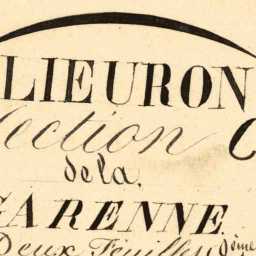 LIEURON
ection C
de la
GARENNE
Deux Feuilles